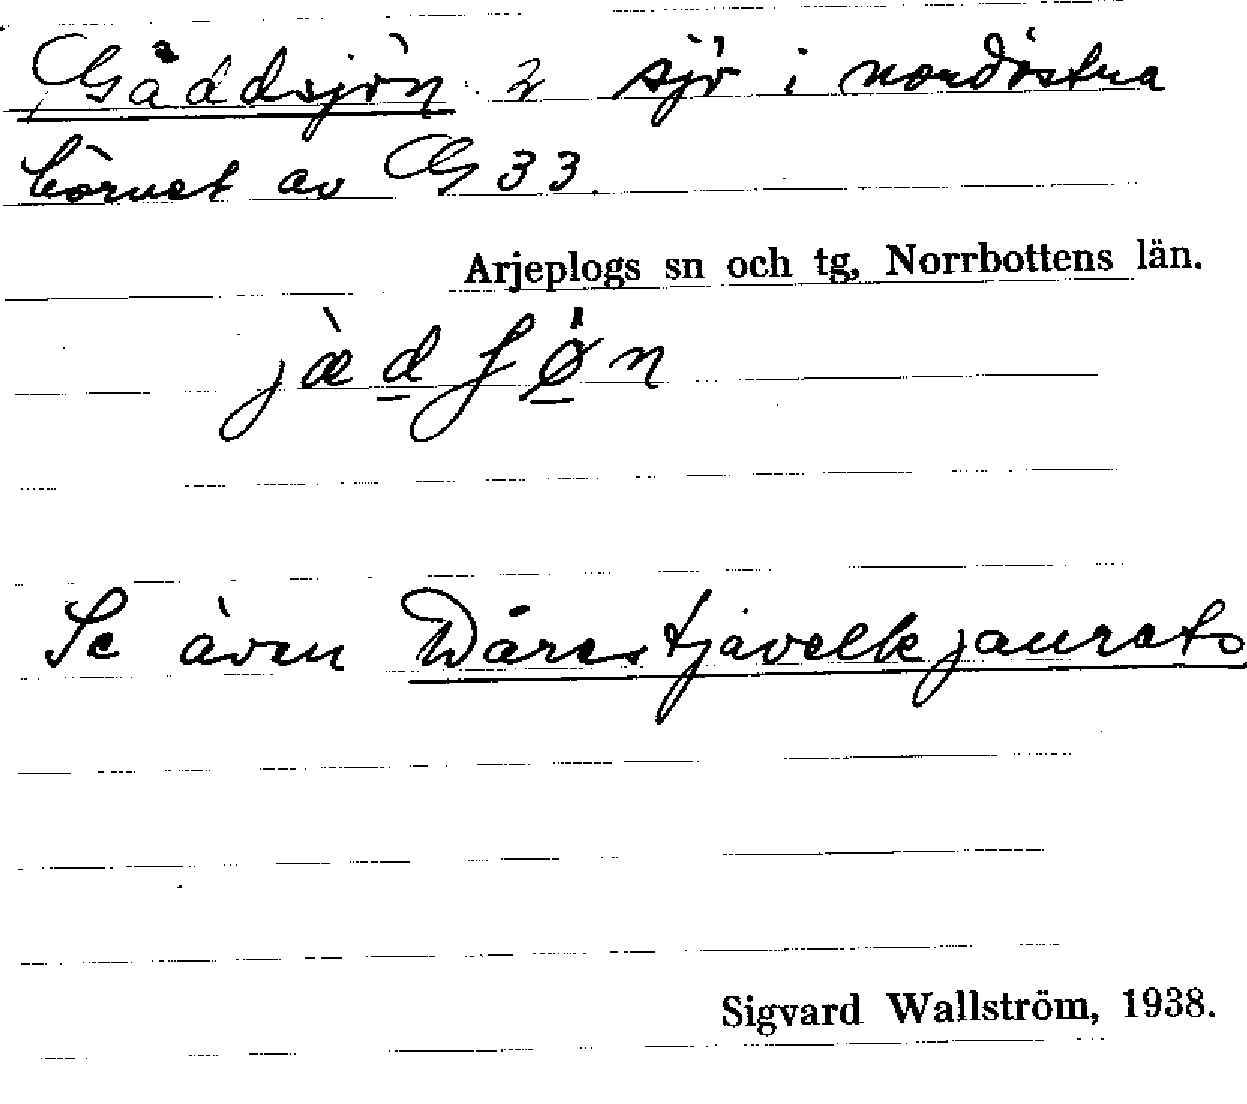 Gäddsjön 2 sjö i nordöstra
hörnet av G 33.
Arjeplogs sn och tg, Norrbottens län.
jæ̀dʃø̀n
Se även Wåres tjävelkjaurats
Sigvard Wallström, 1938.